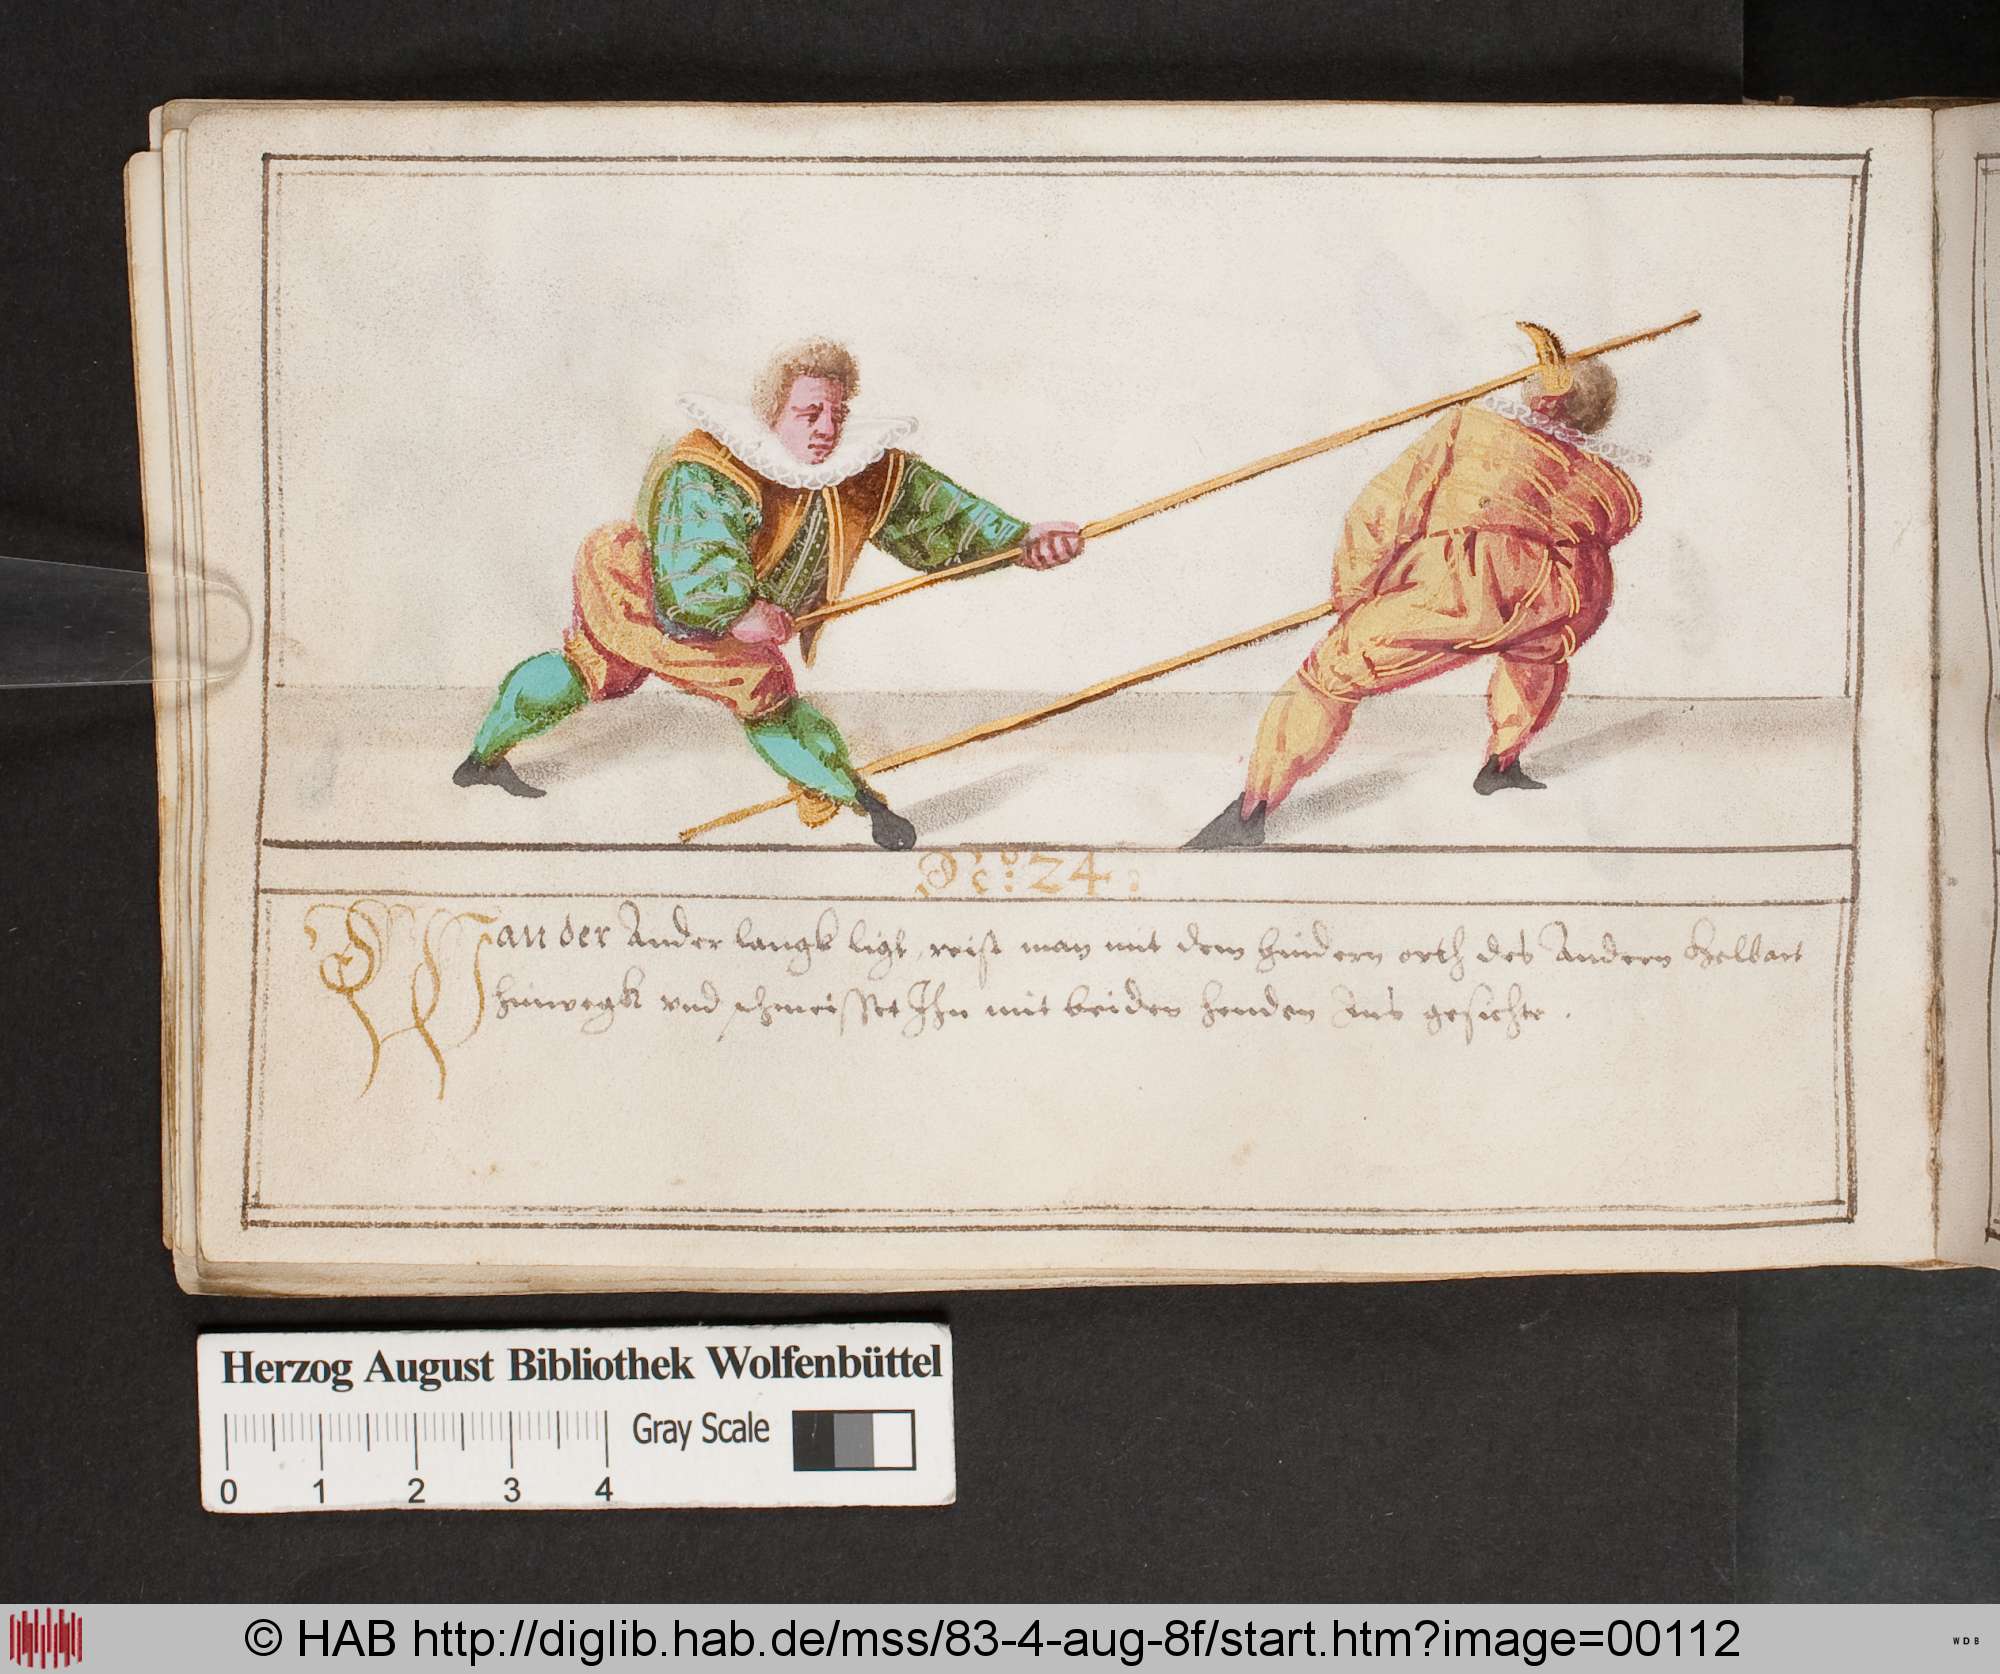 No: 24:
Wan der Ander langk ligt, reist man mit dem hindern orth des Andern Helbart
hinwegk vnd schmeisset Ihn mit beiden henden Ans gesichte.
Herzog August Bibliothek Wolfenbüttel
Gray Scale
0 1 2 3 4
© HAB http://diglib.hab.de/mss/83-4-aug-8f/start.htm?image=00112
WDB